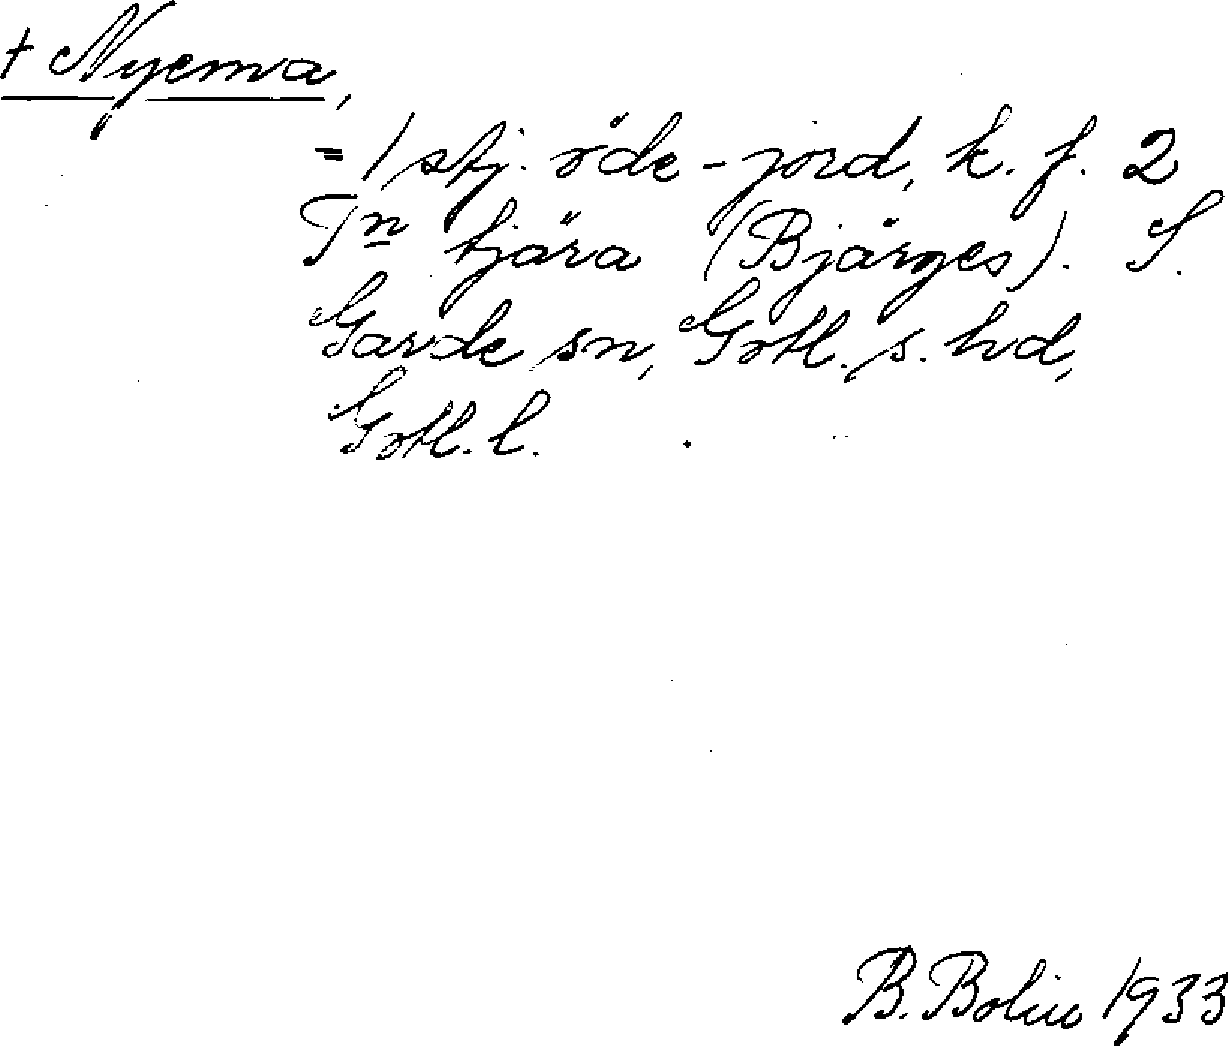 + Nyemva,
= 1 stj. öde-jord, k. f. 2
Tn tjära (Bjärges). S.
Garde sn, Gotl. s. hd,
Gotl. l.
B. Bolin 1933